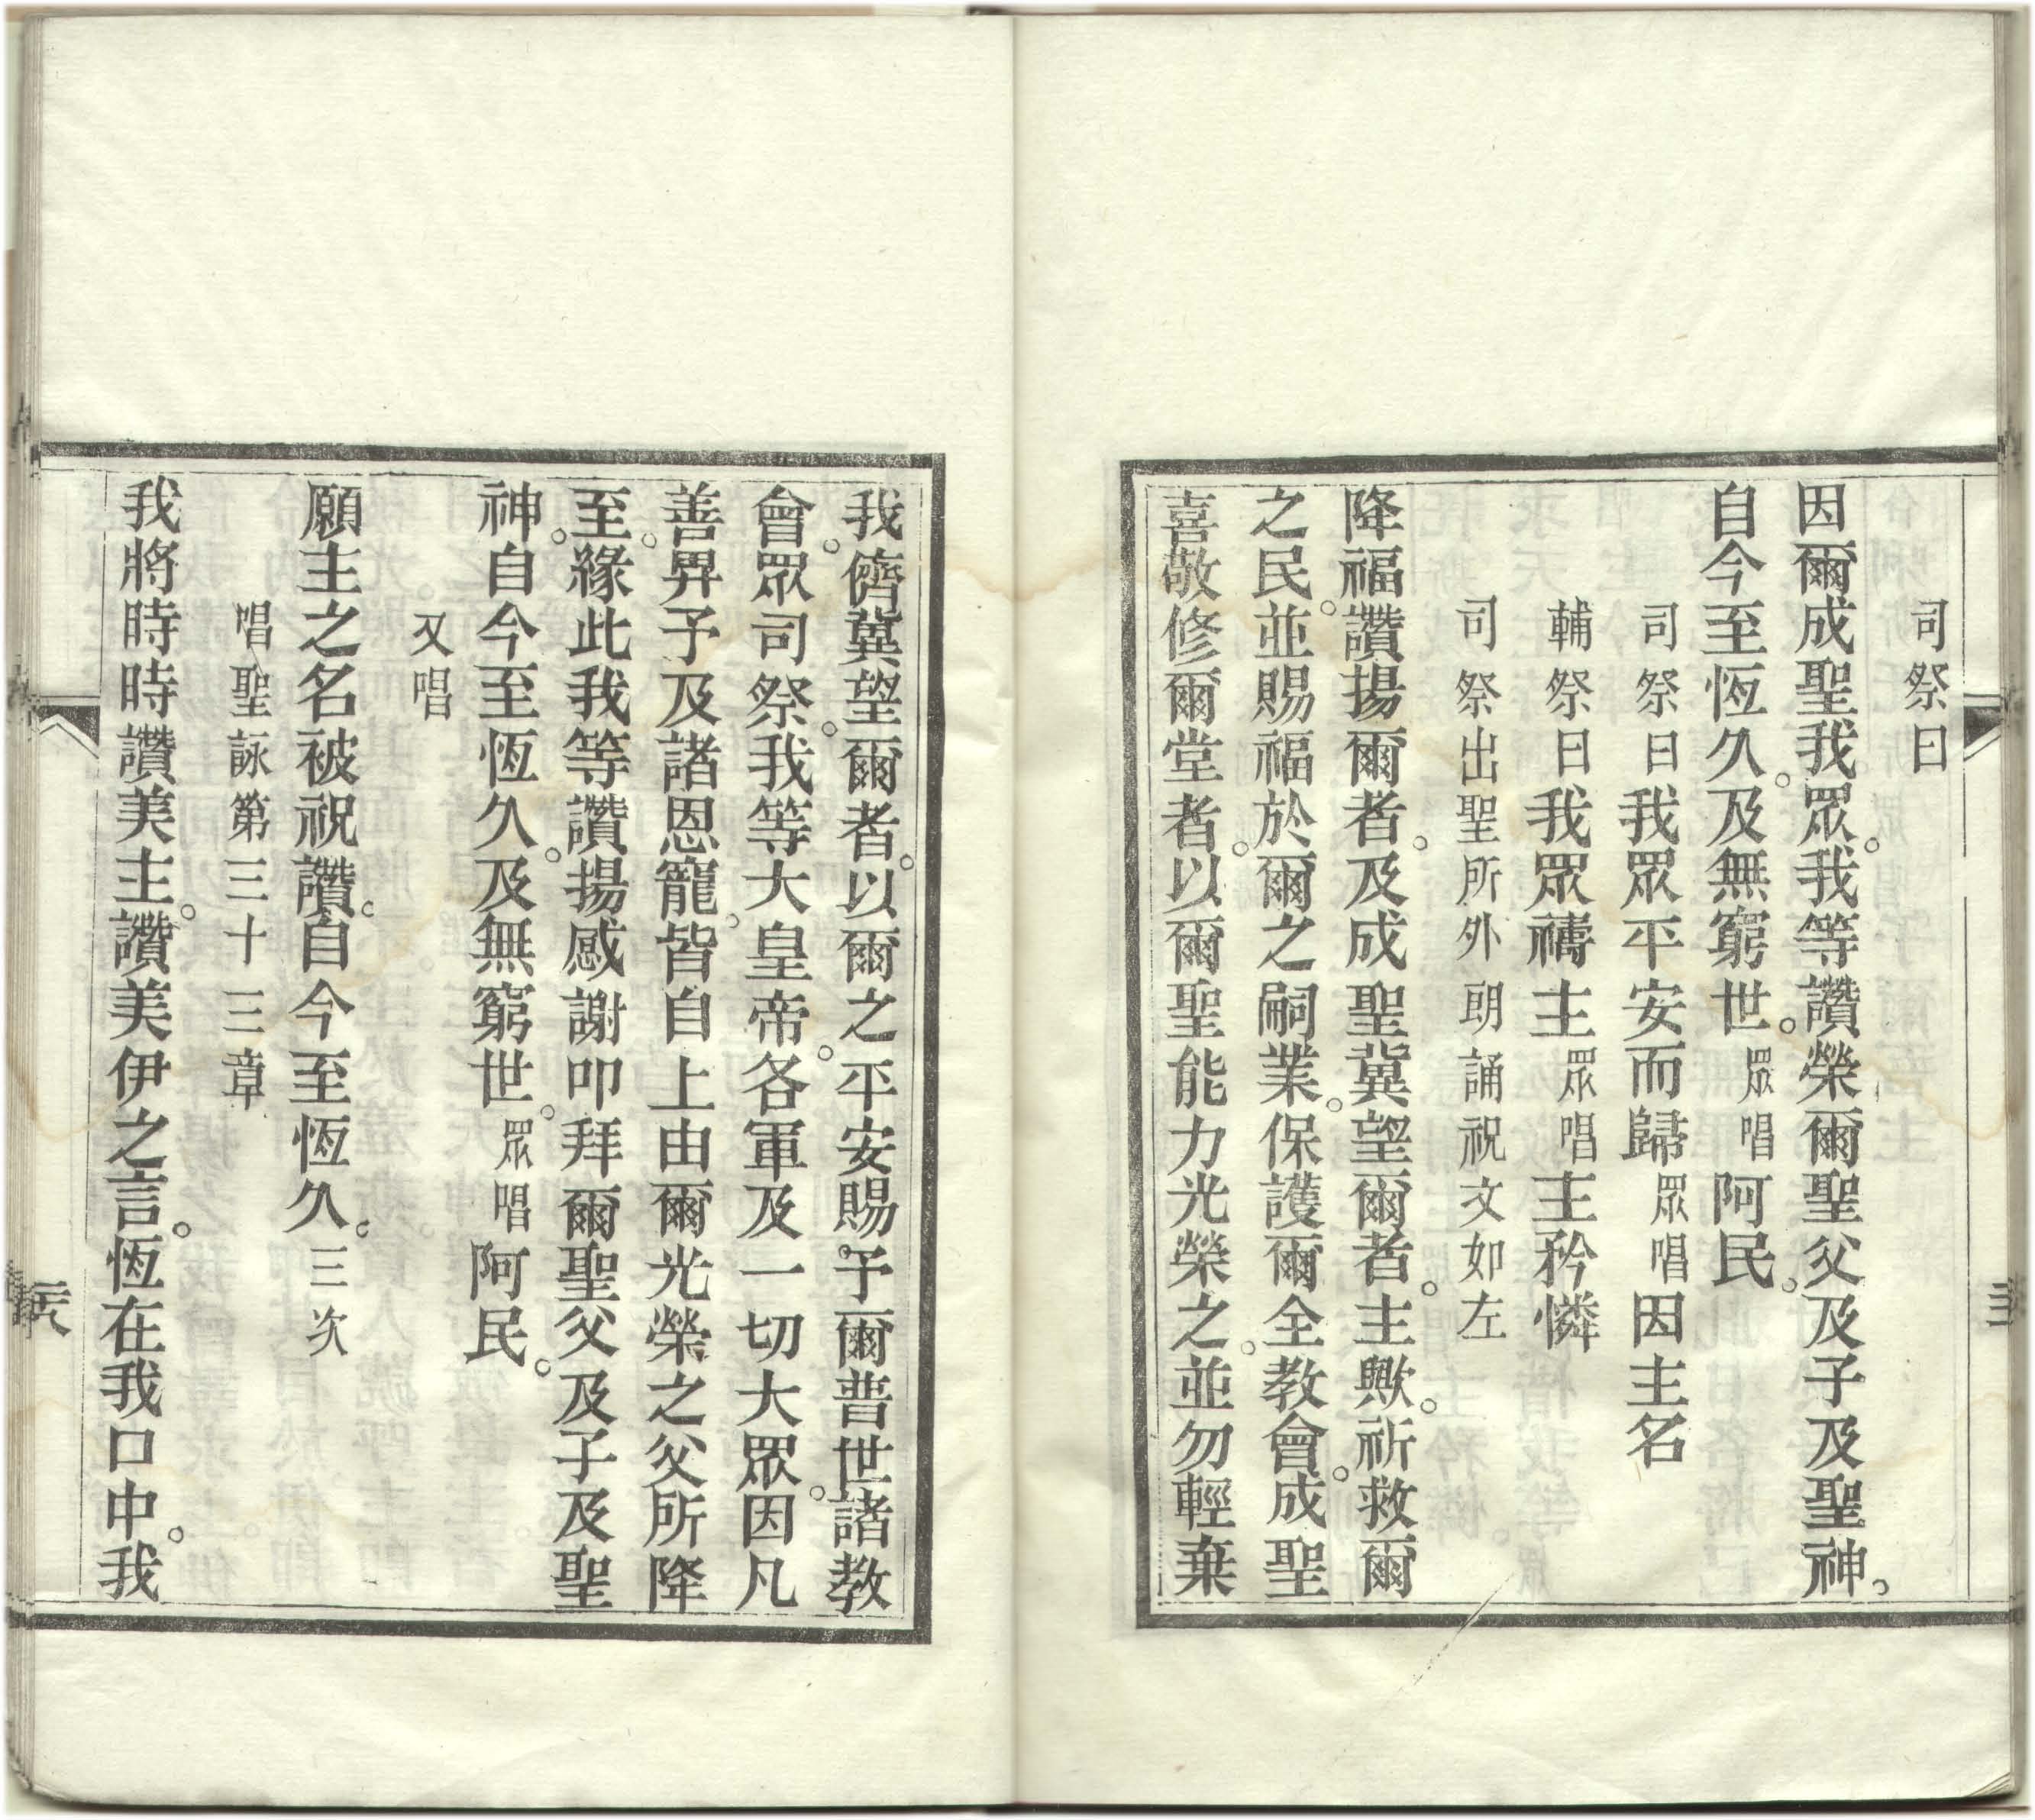 司祭曰
因爾成聖我眾。我等讚榮爾聖父及子及聖神。
自今至恆久。及無窮世。眾唱阿民。
司祭曰我眾平安而歸眾唱因主名
輔祭曰我眾禱主眾唱主矜憐
司祭出聖所外朗誦祝文如左
降福讚揚爾者。及成聖冀望爾者。主歟。祈救爾
之民。並賜福於爾之嗣業。保護爾全教會。成聖
喜敬修爾堂者。以爾聖能力光榮之。並勿輕棄
我儕冀望爾者。以爾之平安賜予爾普世諸教
會。眾司祭。我等大皇帝。各軍及一切大眾。因凡
善畀予及諸恩寵。皆自上由爾光榮之父所降
至。緣此我等讚揚感謝叩拜爾聖父及子及聖
神。自今至恆久。及無窮世。眾唱阿民。
又唱
願主之名被祝讚。自今至恆久。三次
唱聖詠第三十三章
我將時時讚美主。讚美伊之言。恆在我口中。我